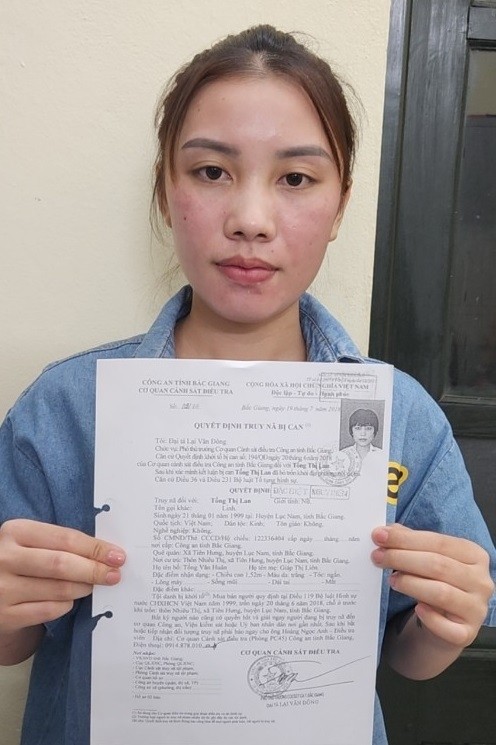 CÔNG AN TỈNH BẮC GIANG
CƠ QUAN CẢNH SÁT ĐIỀU TRA
CỘNG HOÀ XÃ HỘI CHỦ NGHĨA VIỆT NAM
Độc lập - Tự do - Hạnh phúc
Số:
Bắc Giang, ngày 19 tháng 7 năm
QUYẾT ĐỊNH TRUY NÃ BỊ CAN
Tôi: Đại tá Lại Văn Đông
Chức vụ: Phó thủ trưởng Cơ quan Cảnh sát điều tra Công an tỉnh Bắc Giang.
Căn cứ Quyết định khởi tố bị can số: ngày 20 tháng 6 năm
của Cơ quan cảnh sát điều tra Công an tỉnh Bắc Giang đối với Tống Thị Lan
Căn cứ Điều 36 và Điều 231 Bộ luật Tố tụng hình sự.
QUYẾT ĐỊNH ĐẶC BIỆT NGUY HIỂM
Truy nã đối với: Tống Thị Lan Giới tính: Nữ.
Tên gọi khác: Linh.
Sinh ngày 21 tháng 01 năm 1999 tại: Huyện Lục Nam, tỉnh Bắc Giang.
Quốc tịch: Việt Nam; Dân tộc: Kinh; Tôn giáo: Không.
Nghề nghiệp: Không.
Số CMND/Thẻ CCCD/Hộ chiếu: 122336404 cấp ngày... tháng... năm
nơi cấp: Công an tỉnh Bắc Giang.
Quê quán: Xã Tiên Hưng, huyện Lục Nam, tỉnh Bắc Giang.
Nơi cư trú: Thôn Nhiêu Thị, xã Tiên Hưng, huyện Lục Nam, tỉnh Bắc Giang.
Họ tên bố: Tống Văn Huấn Họ tên mẹ: Giáp Thị Liên.
Đặc điểm nhận dạng: - Chiều cao 1,52m - Màu da: trắng - Tóc: ngắn.
- Lông mày - Sống mũi - Dái tai - Mắt
Đặc điểm khác:
Tội danh bị khởi tố: Mua bán người quy định tại Điều 119 Bộ luật Hình sự
Nước CHXHCN Việt Nam năm 1999; trốn ngày 20 tháng 6 năm 2018, chỗ ở trước
khi trốn: thôn Nhiêu Thị, xã Tiên Hưng, huyện Lục Nam, tỉnh Bắc Giang.
Bất kỳ người nào cũng có quyền bắt và giải ngay người đang bị truy nã đến
cơ quan Công an, Viện kiểm sát hoặc Uỷ ban nhân dân nơi gần nhất. Sau khi bắt
hoặc tiếp nhận đối tượng truy nã phải báo ngay cho ông Hoàng Ngọc Anh - Điều tra
viên Địa chỉ: Cơ quan Cảnh sát điều tra (Phòng PC45) Công an tỉnh Bắc Giang,
Điện thoại: 0914.878.010
CƠ QUAN CẢNH SÁT ĐIỀU TRA
Nơi nhận:
Đại tá LẠI VĂN ĐÔNG